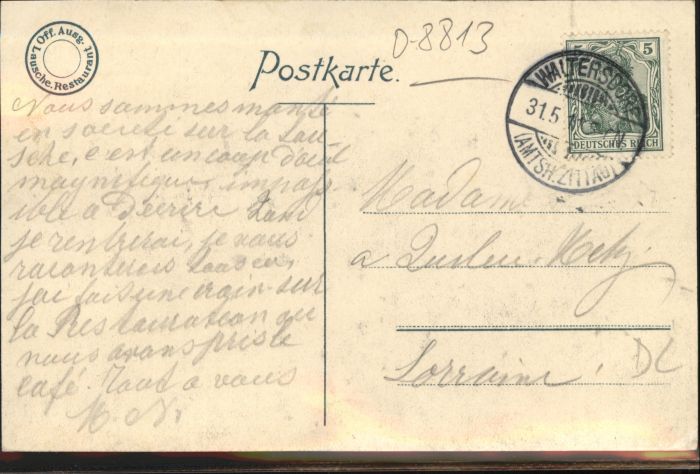 Off. Ausg.
Lausche. Restaurant.
Postkarte.
D-8813
5 5
DEUTSCHES REICH
WALTERSDORF
31.5.
(AMTSH. ZITTAU)
Nous sommes monté
en société sur la Lau-
sche, c'est un coup d'œil
magnifique, impos-
ible a Décrire
je rentrerai, je vous
raconterais
j'ai fait une croix sur
la Restauration ou
nous avons pris le
café. Tout a vous
M. N.
Madame
a Queleu-Metz
Lorraine
DL